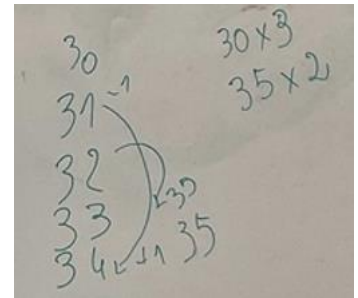 30
31 -1
32
33
34 +1 35
35
30×3
35×2